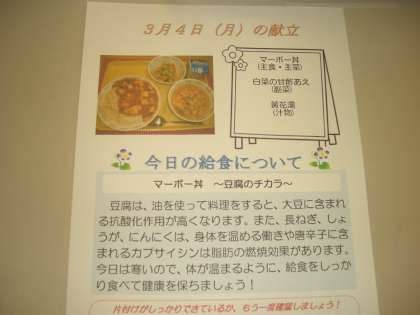 3月4日（月）の献立
マーボー丼
（主食・主菜）
白菜の甘酢あえ
（副菜）
黄花湯
（汁物）
今日の給食について
マーボー丼　～豆腐のチカラ～
豆腐は、油を使って料理をすると、大豆に含まれ
る抗酸化作用が高くなります。また、長ねぎ、しょ
うが、にんにくは、身体を温める働きや唐辛子に含
まれるカプサイシンは脂肪の燃焼効果があります。
今日は寒いので、体が温まるように、給食をしっか
り食べて健康を保ちましょう！
片付けがしっかりできているか、もう一度確認しましょう！